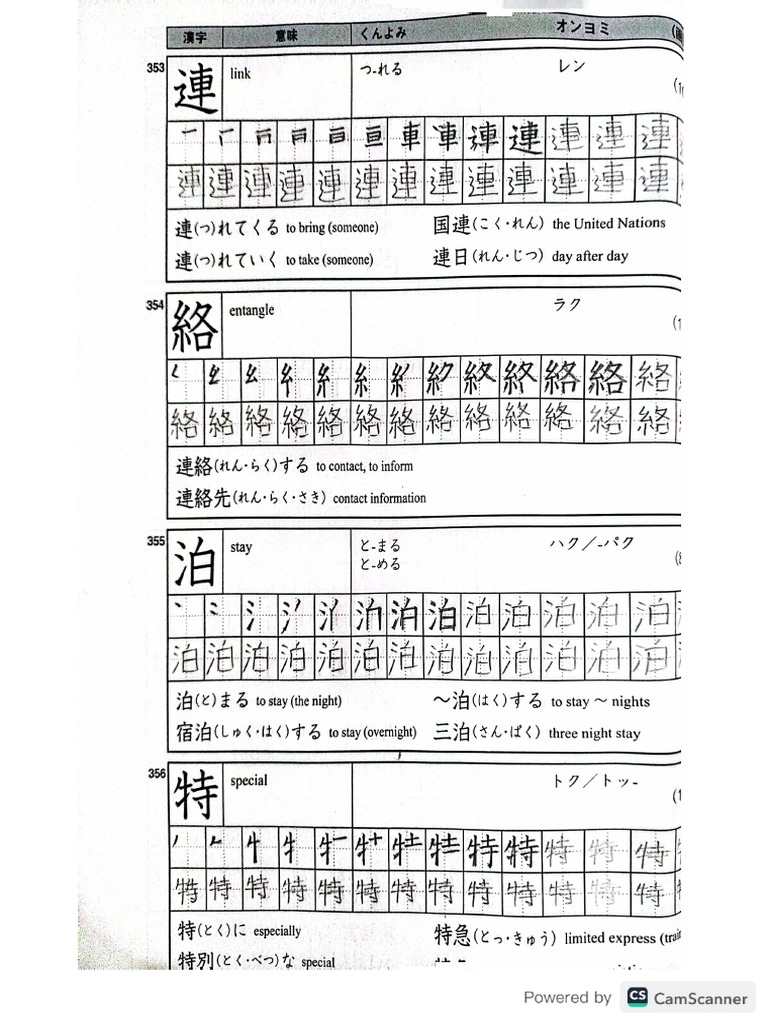 漢字 意味 くんよみ オンヨミ
353 連 link つ-れる レン
一 車 車 連 連 連 連 連
連 連 連 連 連 連 連 連 連 連 連 連 連
連(つ)れてくる to bring (someone) 国連(こく・れん) the United Nations
連(つ)れていく to take (someone) 連日(れん・じつ) day after day
354 絡 entangle ラク
絡 絡 絡
絡 絡 絡 絡 絡 絡 絡 絡 絡 絡 絡 絡 絡
連絡(れん・らく)する to contact, to inform
連絡先(れん・らく・さき) contact information
355 泊 stay と-まる ハク/-パク
と-める
泊 泊 泊 泊 泊 泊
泊 泊 泊 泊 泊 泊 泊 泊 泊 泊 泊 泊 泊
泊(と)まる to stay (the night) 〜泊(はく)する to stay 〜 nights
宿泊(しゅく・はく)する to stay (overnight) 三泊(さん・ぱく) three night stay
356 特 special トク/トッ-
特 特 特 特 特
特 特 特 特 特 特 特 特 特 特 特 特 特
特(とく)に especially 特急(とっ・きゅう) limited express
特別(とく・べつ)な special
Powered by CS CamScanner